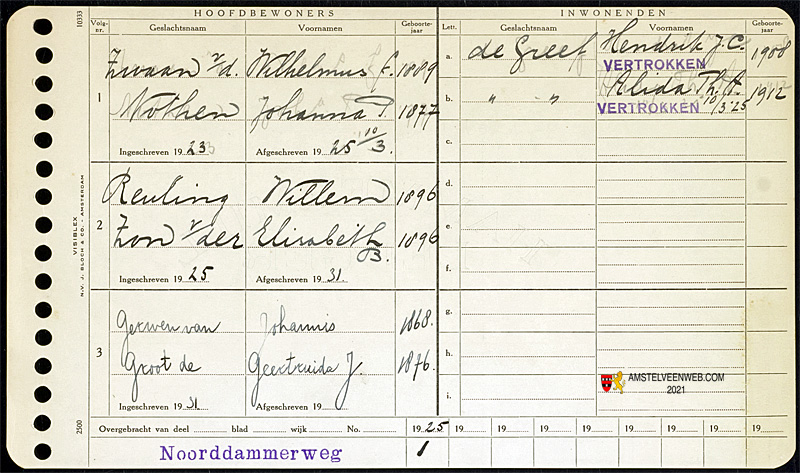 HOOFDBEWONERS
INWONENDEN
Volg-nr. Geslachtsnaam Voornamen Geboorte-jaar Lett. Geslachtsnaam Voornamen Geboorte-jaar
1
Zwaan v/d. Wilhelmus F. 1889
Nothen Johanna P. 1877
Ingeschreven 19 23 Afgeschreven 19 25 10/3.
2
Reuling Willem 1896
Zon v/der Elisabeth B. 1896
Ingeschreven 19 25 Afgeschreven 19 31.
3
Gerwen van Johannis 1868.
Groot de Geertruida J. 1876.
Ingeschreven 19 31 Afgeschreven 19
a. de Greef Hendrik J.C. 1908
VERTROKKEN
b. " " Alida Th. A. 1912
VERTROKKEN 10/3 '25
c.
d.
e.
f.
g.
h.
i.
AMSTELVEENWEB.COM
2021
Overgebracht van deel blad wijk No. 19 25 19 19 19 19 19 19 19 19
Noorddammerweg 1
10333
VISIBLEX
N.V. J. BLOCH & CO. - AMSTERDAM
2500